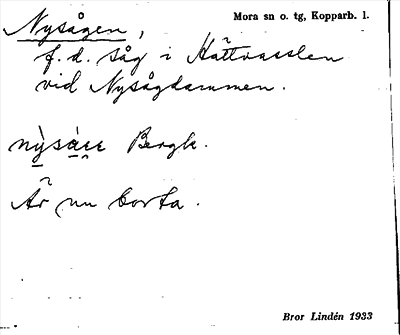 Nysågen,
Mora sn o. tg, Kopparb. l.
f. d. såg i Hättvasslen
vid Nysågdammen.
Bergk.
Är nu borta.
Bror Lindén 1933